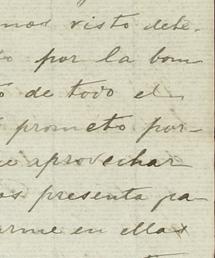 mos visto dete-
por la bon
de todo el
prometo por-
aprovechar
os presenta pa-
arme en ellas